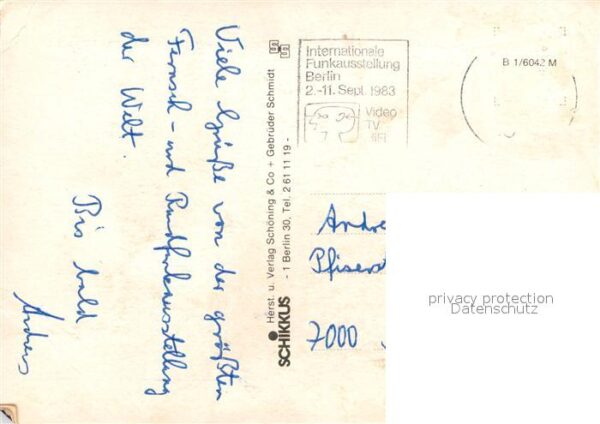 Viele Grüße von der größten
Fernseh- und Rundfunkausstellung
der Welt.
Bis bald
Andreas
Herst. u. Verlag Schöning & Co + Gebrüder Schmidt
SCHIKKUS - 1 Berlin 30, Tel. 2 61 11 19 -
Internationale
Funkausstellung
Berlin
2.-11. Sept. 1983
Video
TV
HiFi
B 1/6042 M
Andre
7000
privacy protection
Datenschutz